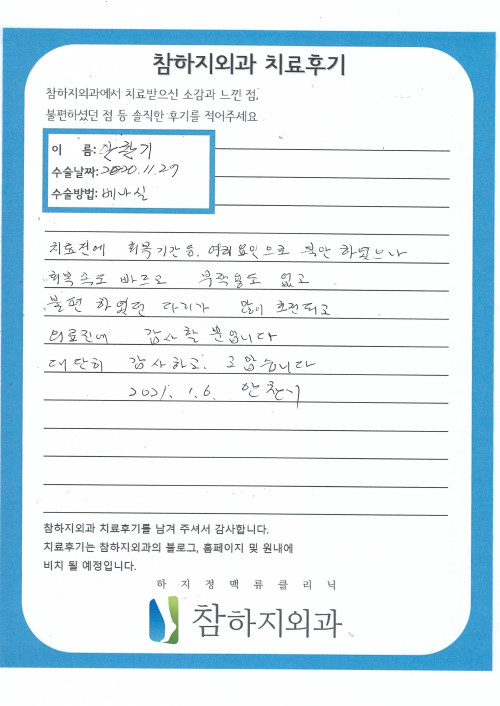 참하지외과 치료후기
참하지외과에서 치료받으신 소감과 느낀 점,
불편하셨던 점 등 솔직한 후기를 적어주세요
이 름: 안찬기
수술날짜: 2020.11.27
수술방법: 베나실
치료전에 회복기간등, 여러요인으로 불안 하였으나
회복속도 바르고 부작용도 없고
불편 하였던 다리가 많이 호전되고
의료진에 감사할 뿐입니다
대단히 감사하고. 고맙습니다
2021. 1. 6. 안찬기
참하지외과 치료후기를 남겨 주셔서 감사합니다.
치료후기는 참하지외과의 블로그, 홈페이지 및 원내에
비치 될 예정입니다.
하지정맥류클리닉
참하지외과